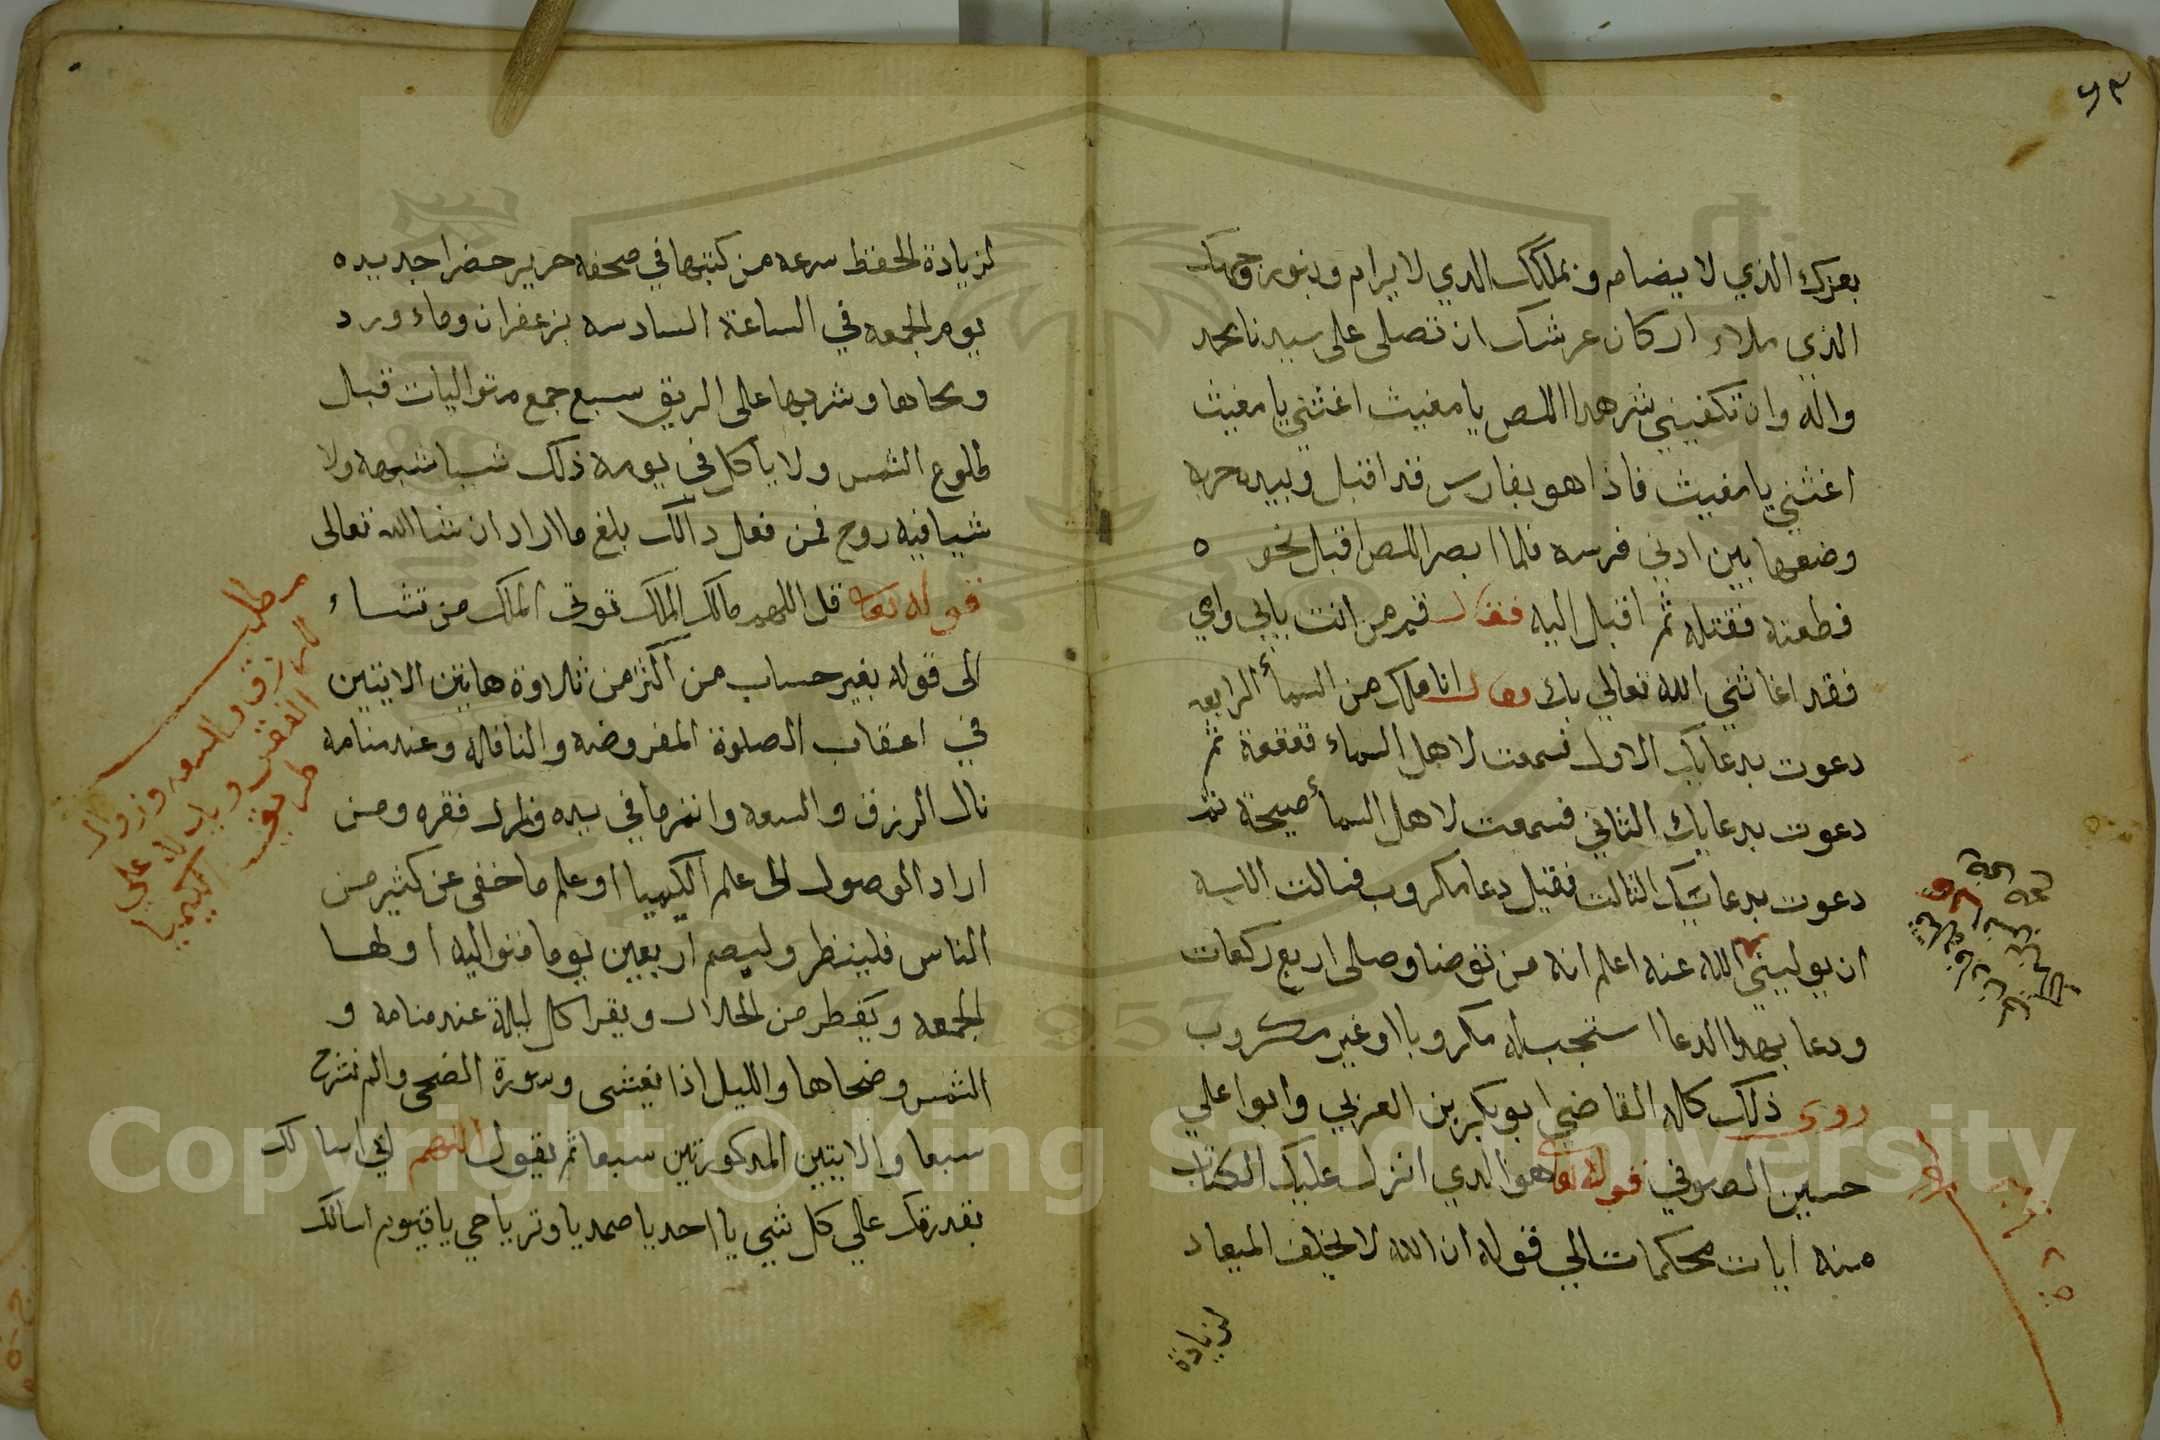 ٧٣
بعزك الذي لا يضام و بملكك الدي لا يرام و بنور وجهك
الذي ملاء اركان عرشك ان تصلى على سيدنا محمد
واله وان تكفيني شر هدا اللص يا مغيث اغثني يا مغيث
اغثني يا مغيث فاذا هو بفارس قد اقبل وبيده حربه
وضعها بين ادني فرسه فلما ابصر اللص اقبل نحو ه
فطعنه فقتله ثم اقبل اليه فقال قم من انت بابي وامي
فقد اغاثني الله تعالي بك فقال انا ملك من السماء الرابعه
دعوت بدعايك الاول فسمعت لاهل السماء قعقعة ثم
دعوت بدعايك الثاني فسمعت لاهل السماء صيحة ثم
دعوت بدعايك الثالث فقيل دعا مكروب فسالت الله
ان يوليني الله عنه اعلم انه من توضا وصلى اربع ركعات
ودعا بهدا الدعا استجب له مكروبا او غير مكروب
روى ذلك كله القاضي ابو بكر بن العربي وابوا علي
حسين الصوفي قوله تعا هو الدي انزل عليك الكتاب
منه ايات محكمات الي قوله ان الله لا يخلف الميعاد
لزيادة
لزيادة الحفظ سرعه من كتبها في صحفه حرير خضرا جديده
يوم الجمعه في الساعة السادسه بزعفران وماء ورد
ومحاها وشربها على الريق سبع جمع متواليات قبل
طلوع الشمس ولا ياكل في يومه ذلك شيبا شبهه ولا
شيا فيه روح فمن فعل دالك بلغ ما اراد ان شا الله تعالى
قوله تعا قل اللهم مالك الملك توتي الملك من تشاء
الى قوله بغير حساب من اكثر من تلاوة هاتين الايتين
في اعقاب الصلوة المفروضه والنافله وعند منامه
نال الرزق والسعه وانمر ما في يده وطرد فقره ومن
اراد الوصول الى علم الكيميا او علم ما خفى عن كثير من
الناس فلينظر وليصم اربعين يوما متواليه اولها
الجمعه ويفطر من الحلال ويقرا كل ليلة عند منامه و
الشمس وضحاها والليل اذا يغشى وسورة الضحى والم نشرح
سبعا والايتين المدكورتين سبعا ثم يقول اللهم اني اسالك
بقدرتك علي كل شي يا احد يا صمد يا وتر يا حي يا قيوم اسالك
مطلب
الرزق والسعه وزوال
الفقر و باب له علي
طريق الكيميا
Copyright © King Saud University
1957